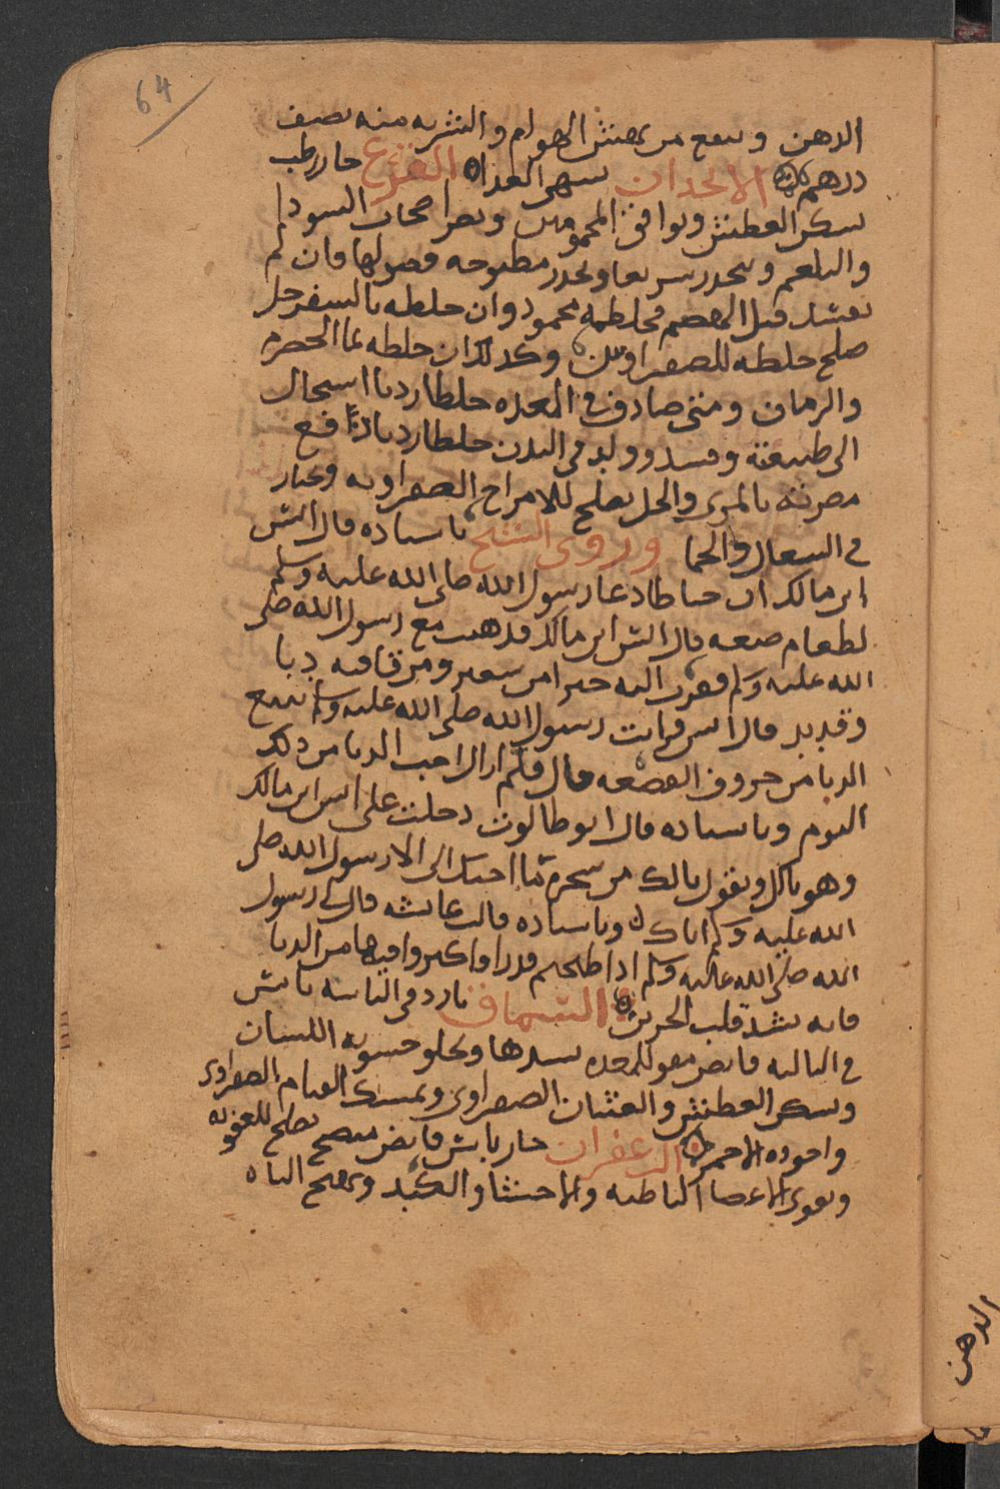 64
الدهن وينفع من نهش الهوام والشربه منه نصف
درهم الانجدان يشهي الغدا القرع حار رطب
يسكن العطش ويوافق المحمومين ويضر اصحاب السودا
والبلغم وينحدر سريعا ويحدر مطبوخه فضولها فان لم
يفسد قبل الهضم فخلطه محمود وان خلطه بالسفرجل
صلح خلطه للصفراويين وكدلك ان خلطه بما الحصرم
والرمان ومتى صادف في المعده خلطا رديا استحال
الى طبيعته وفسد وولد في البدن خلطا رديا ودفع
مضرته بالمري والخل يصلح للامزاج الصفراويه ويختار
في السعال والحما وروى الشيخ باسناده قال انس
ابن مالك ان خياطا دعا رسول الله صلى الله عليه وسلم
لطعام صنعه قال انس ابن مالك فدهبت مع رسول الله صلى
الله عليه وسلم فقرب اليه خبزا من شعير ومرقا فيه دبا
وقديد قال انس فرايت رسول الله صلى الله عليه وسلم يتبع
الدبا من حروف القصعه قال فلم ازال احب الدبا من دلك
اليوم وباسناده قال ابو طالوت دخلت على انس ابن مالك
وهو ياكل ويقول يالك من شجرة ما احبك الي الا رسول الله صلى
الله عليه وسلم اياك وباسناده قالت عايشه قال لي رسول
الله صلى الله عليه وسلم ادا طبختم قدرا فاكثروا فيها من الدبا
فانه يشد قلب الحزين السماق بارد في الثانيه يابس
في الثالثه قابض مقو للمعده يسدها ويجلو خشونه اللسان
ويسكن العطش والغثيان الصفراوي ويمسك القيام الصفراوي
واجوده الاحمر الزعفران حار يابس قابض منضج يصلح للعفونه
ويقوي الاعضا الباطنه والاحشا والكبد ويهيج الباه
الدهن